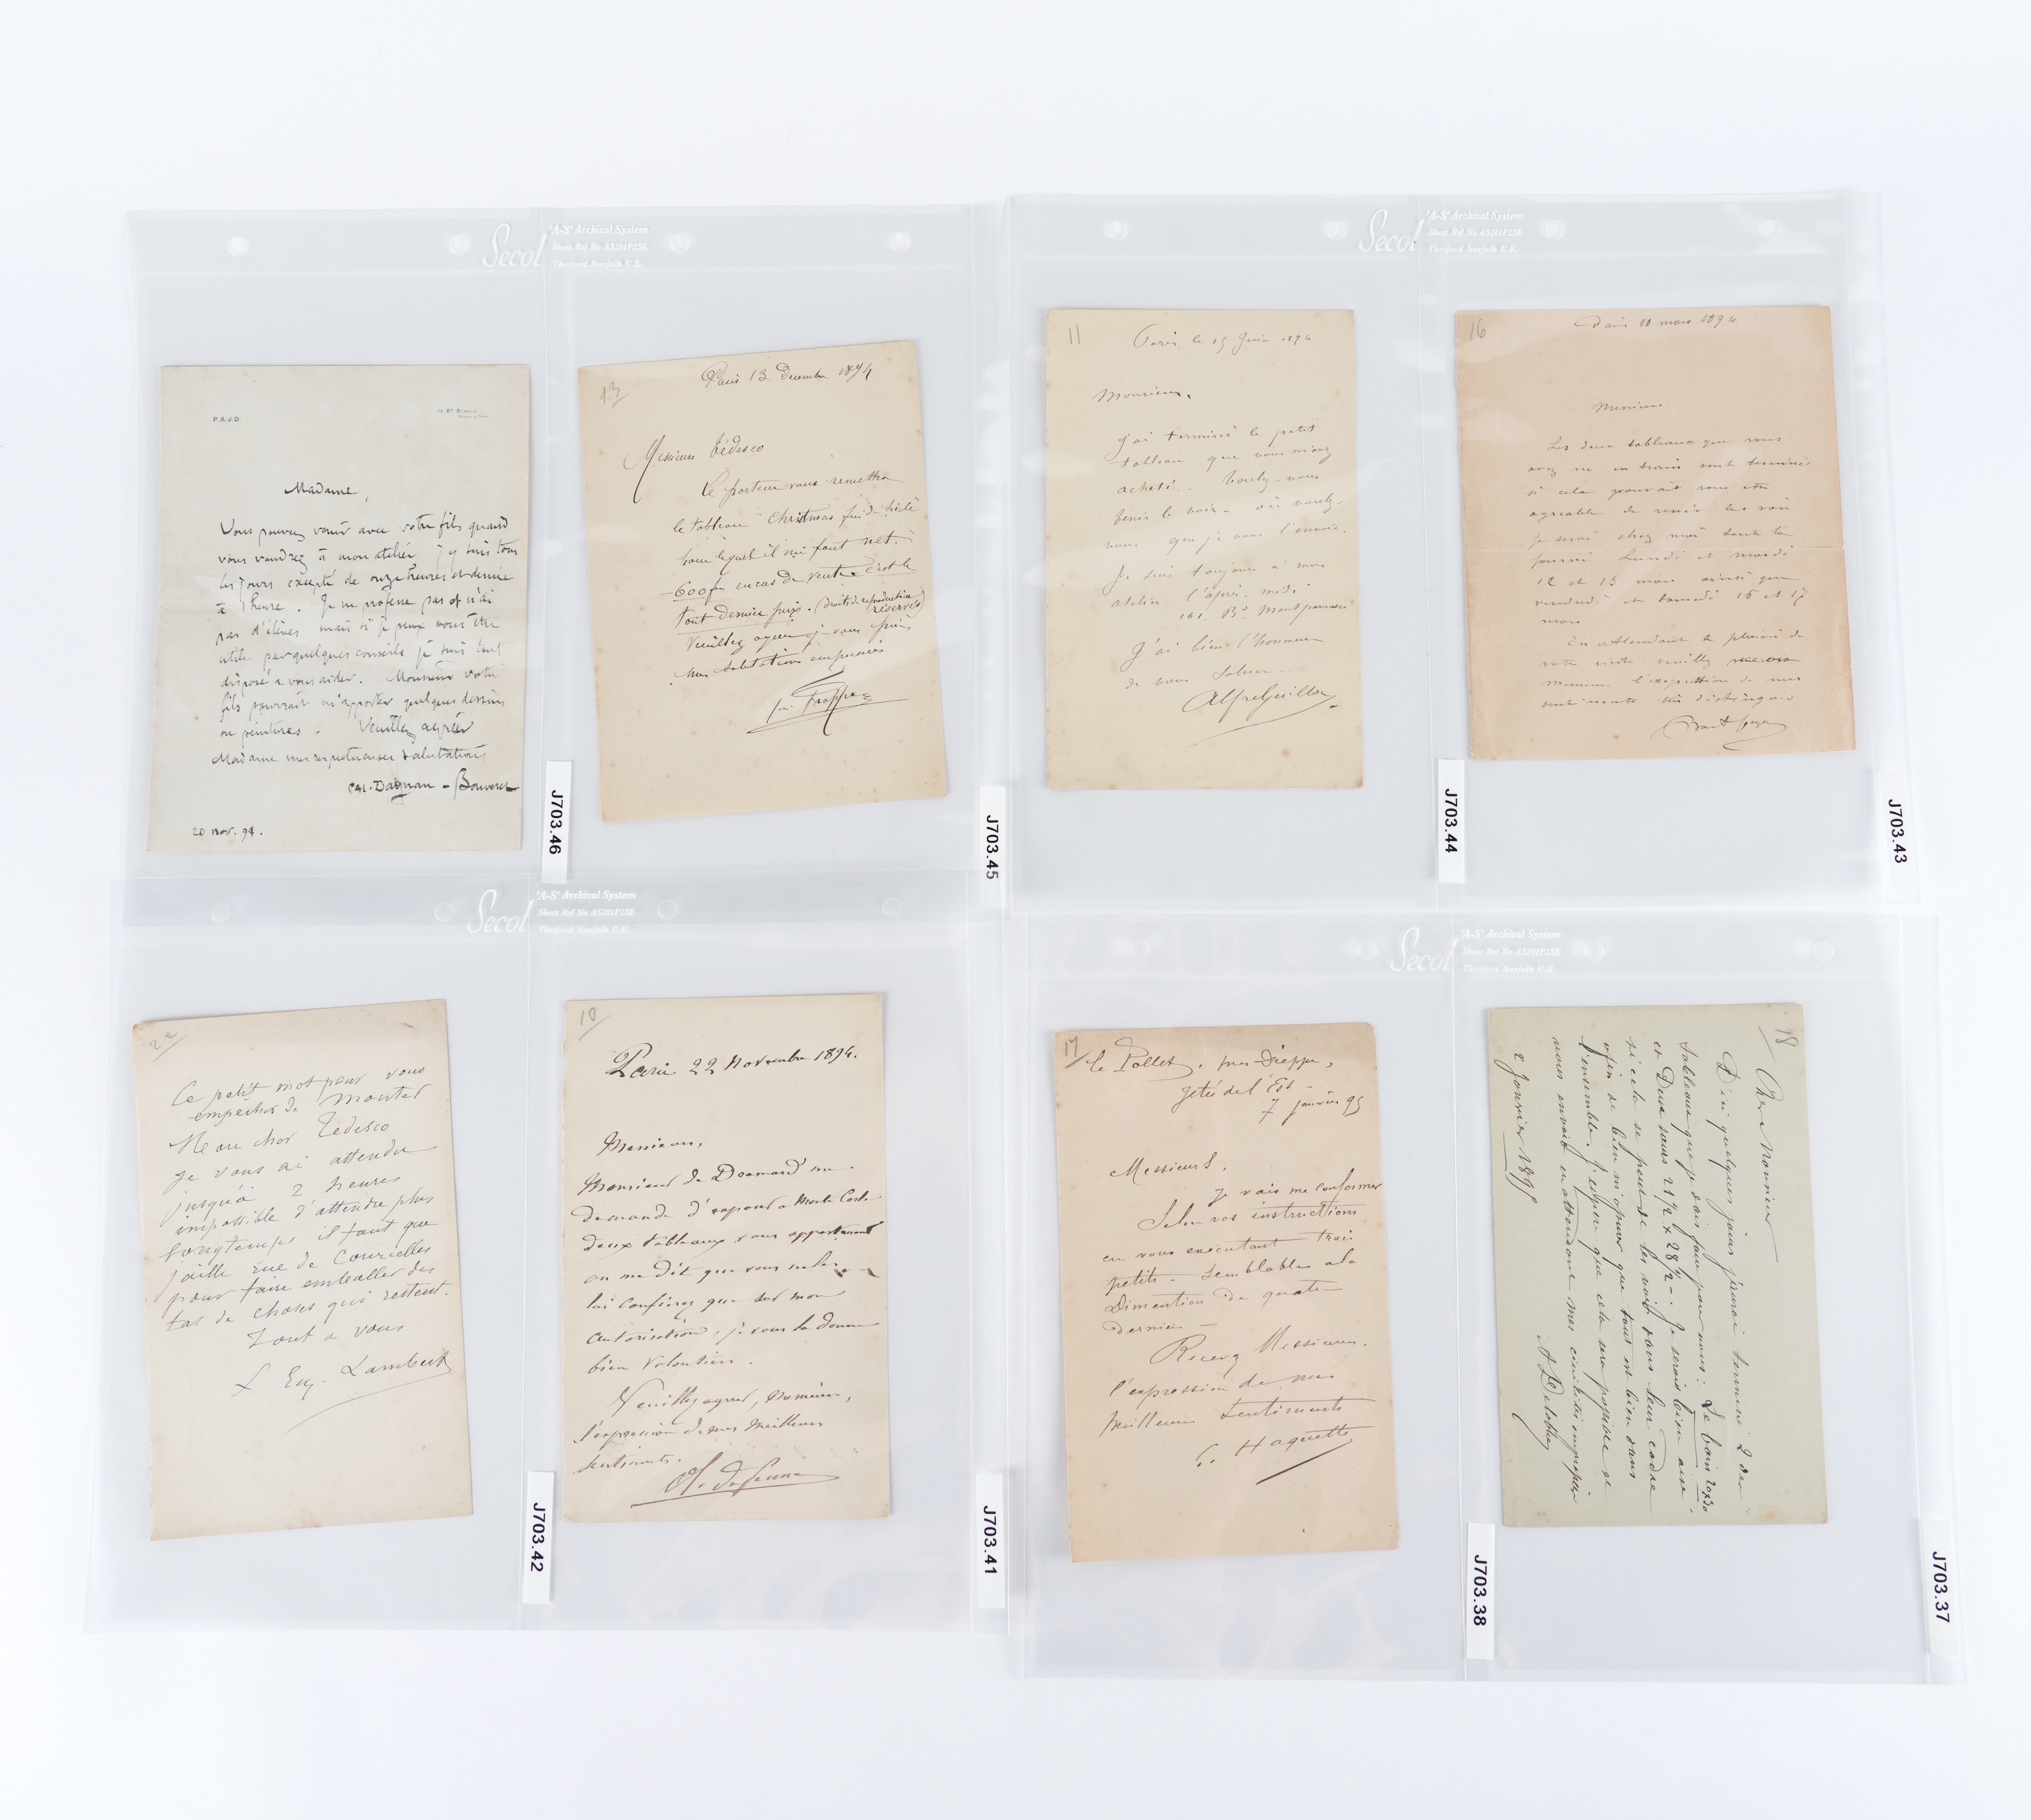 Secol
'A-S' Archival System
Sheet Ref No AS201P2SE
Thetford Norfolk U.K.
P.A.J.D.
Madame,
Vous pouvez venir avec votre fils quand
vous voudrez à mon atelier j'y suis tous
les jours excepté de onze heures et demie
à 1 heure. Je ne professe pas et n'ai
pas d'élèves mais si je peux vous être
utile par quelques conseils je suis tout
disposé à vous aider. Monsieur votre
fils pourrait m'apporter quelques dessins
ou peintures. Veuillez agréer
Madame mes respectueuses salutations
PAJ. Dagnan-Bouveret
20 nov. 94.
J703.46
13
Paris 13 Decembre 1894
Messieurs Tédesco
Le porteur vous remettra
le tableau "Christmas fin de siècle"
pour lequel il me faut net.
600f en cas de vente c'est le
tout dernier prix. (droits de reproduction
réservés)
Veuillez agréer je vous prie
mes salutations empressées
J703.45
Secol
'A-S' Archival System
Sheet Ref No AS201P2SE
Thetford Norfolk U.K.
11
Paris le 15 Juin 1894
Monsieur,
J'ai terminé le petit
tableau que vous m'avez
acheté. - Voulez-vous
venir le voir - où voulez-
vous que je vous l'envoie.
Je suis toujours à mon
atelier l'après-midi
161. Bd Montparnasse
J'ai bien l'honneur
de vous saluer.
Alf Guillou
J703.44
16
Paris 10 mars 1894.
Messieurs
Les deux tableaux que vous
avez vu en train sont terminés
si cela pouvait vous être
agréable de venir les voir
je serai chez moi toute la
journée Lundi et mardi
12 et 13 mars ainsi que
vendredi et samedi 16 et 17
mars
En attendant le plaisir de
votre visite veuillez
Messieurs l'expression de mes
sentiments distingués
J703.43
Secol
'A-S' Archival System
Sheet Ref No AS201P2SE
Thetford Norfolk U.K.
22
Ce petit mot pour vous
empêcher de monter
Mon cher Tedesco
Je vous ai attendu
jusqu'à 2 heures
impossible d'attendre plus
longtemps il faut que
j'aille rue de Courcelles
pour faire emballer des
tas de choses qui restent.
Tout a vous
L Eug. Lambert
J703.42
10
Paris 22 Novembre 1894.
Monsieur,
Monsieur de Dramard me
demande d'exposer a Monte Carlo
deux tableaux vous appartenant
on me dit que vous ne les
lui confierez que sur mon
autorisation, je vous la donne
bien volontiers.
Veuillez agréer, Monsieur,
l'expression de mes meilleurs
sentiments.
J703.41
Secol
'A-S' Archival System
Sheet Ref No AS201P2SE
Thetford Norfolk U.K.
17
le Pollet, près Dieppe,
Jetée de l'Est -
7 janvier 95
Messieurs,
Je vais me conformer
Selon vos instructions
en vous exécutant trois
petits - semblables a la
Dimention de quatre
dernier -
Recevez Messieurs,
l'expression de mes
meilleurs sentiments
G. Haquette
J703.38
18
Cher Monsieur
D'ici quelques jours j'aurai terminé 2 des
tableaux que je dois faire pour vous: Le bain 20x30
et Deux sœurs 21½ x 28½ -. Je serais bien aise
si cela se peut de les voir dans leur cadre
afin de bien m'assurer que tout est bien dans
l'ensemble, j'espère que cela sera possible et
vous envoie en attendant mes civilités empressées
A Delobbe
2 Janvier 1895
J703.37